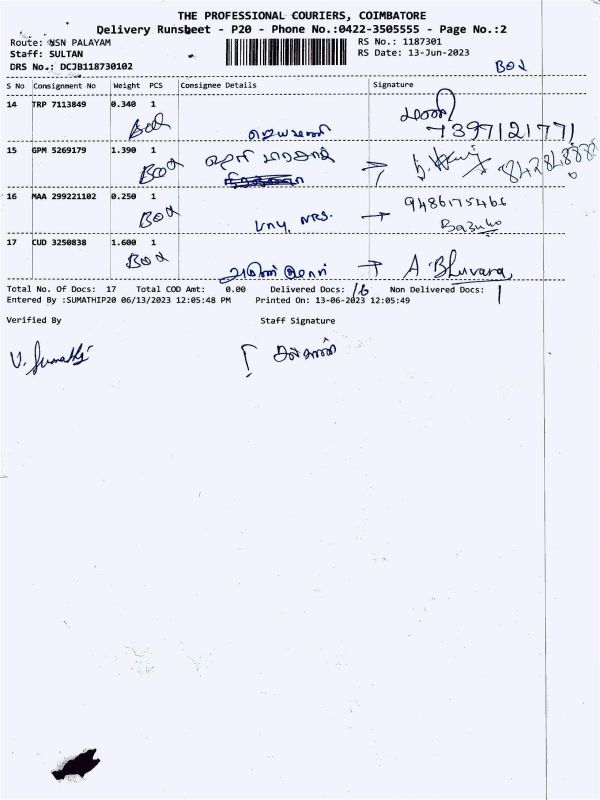 THE PROFESSIONAL COURIERS, COIMBATORE
Delivery Runsheet - P20 - Phone No.:0422-3505555 - Page No.:2
Route: NSN PALAYAM
RS No.: 1187301
Staff: SULTAN
RS Date: 13-Jun-2023
DRS No.: DCJB118730102
S No Consignment No Weight PCS Consignee Details Signature
14 TRP 7113849 0.340 1
Box
7397121771
15 GPM 5269179 1.390 1
Box
16 MAA 299221102 0.250 1
9486175466
Box
17 CUD 3250838 1.600 1
Box
A Bhuvana
Total No. Of Docs: 17 Total COD Amt: 0.00 Delivered Docs: 16 Non Delivered Docs: 1
Entered By :SUMATHIP20 06/13/2023 12:05:48 PM Printed On: 13-06-2023 12:05:49
Verified By Staff Signature
V. Sumathi